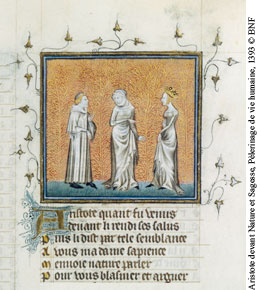 Aristote quant fu venus
Deuant li rendi ses salus
Puis li dist par tele semblance
A vous ma dame sapience
Menuoie nature parler
Pour vous blasmer et arguer
Aristote devant Nature et Sagesse, Pèlerinage de vie humaine, 1393 © BNF